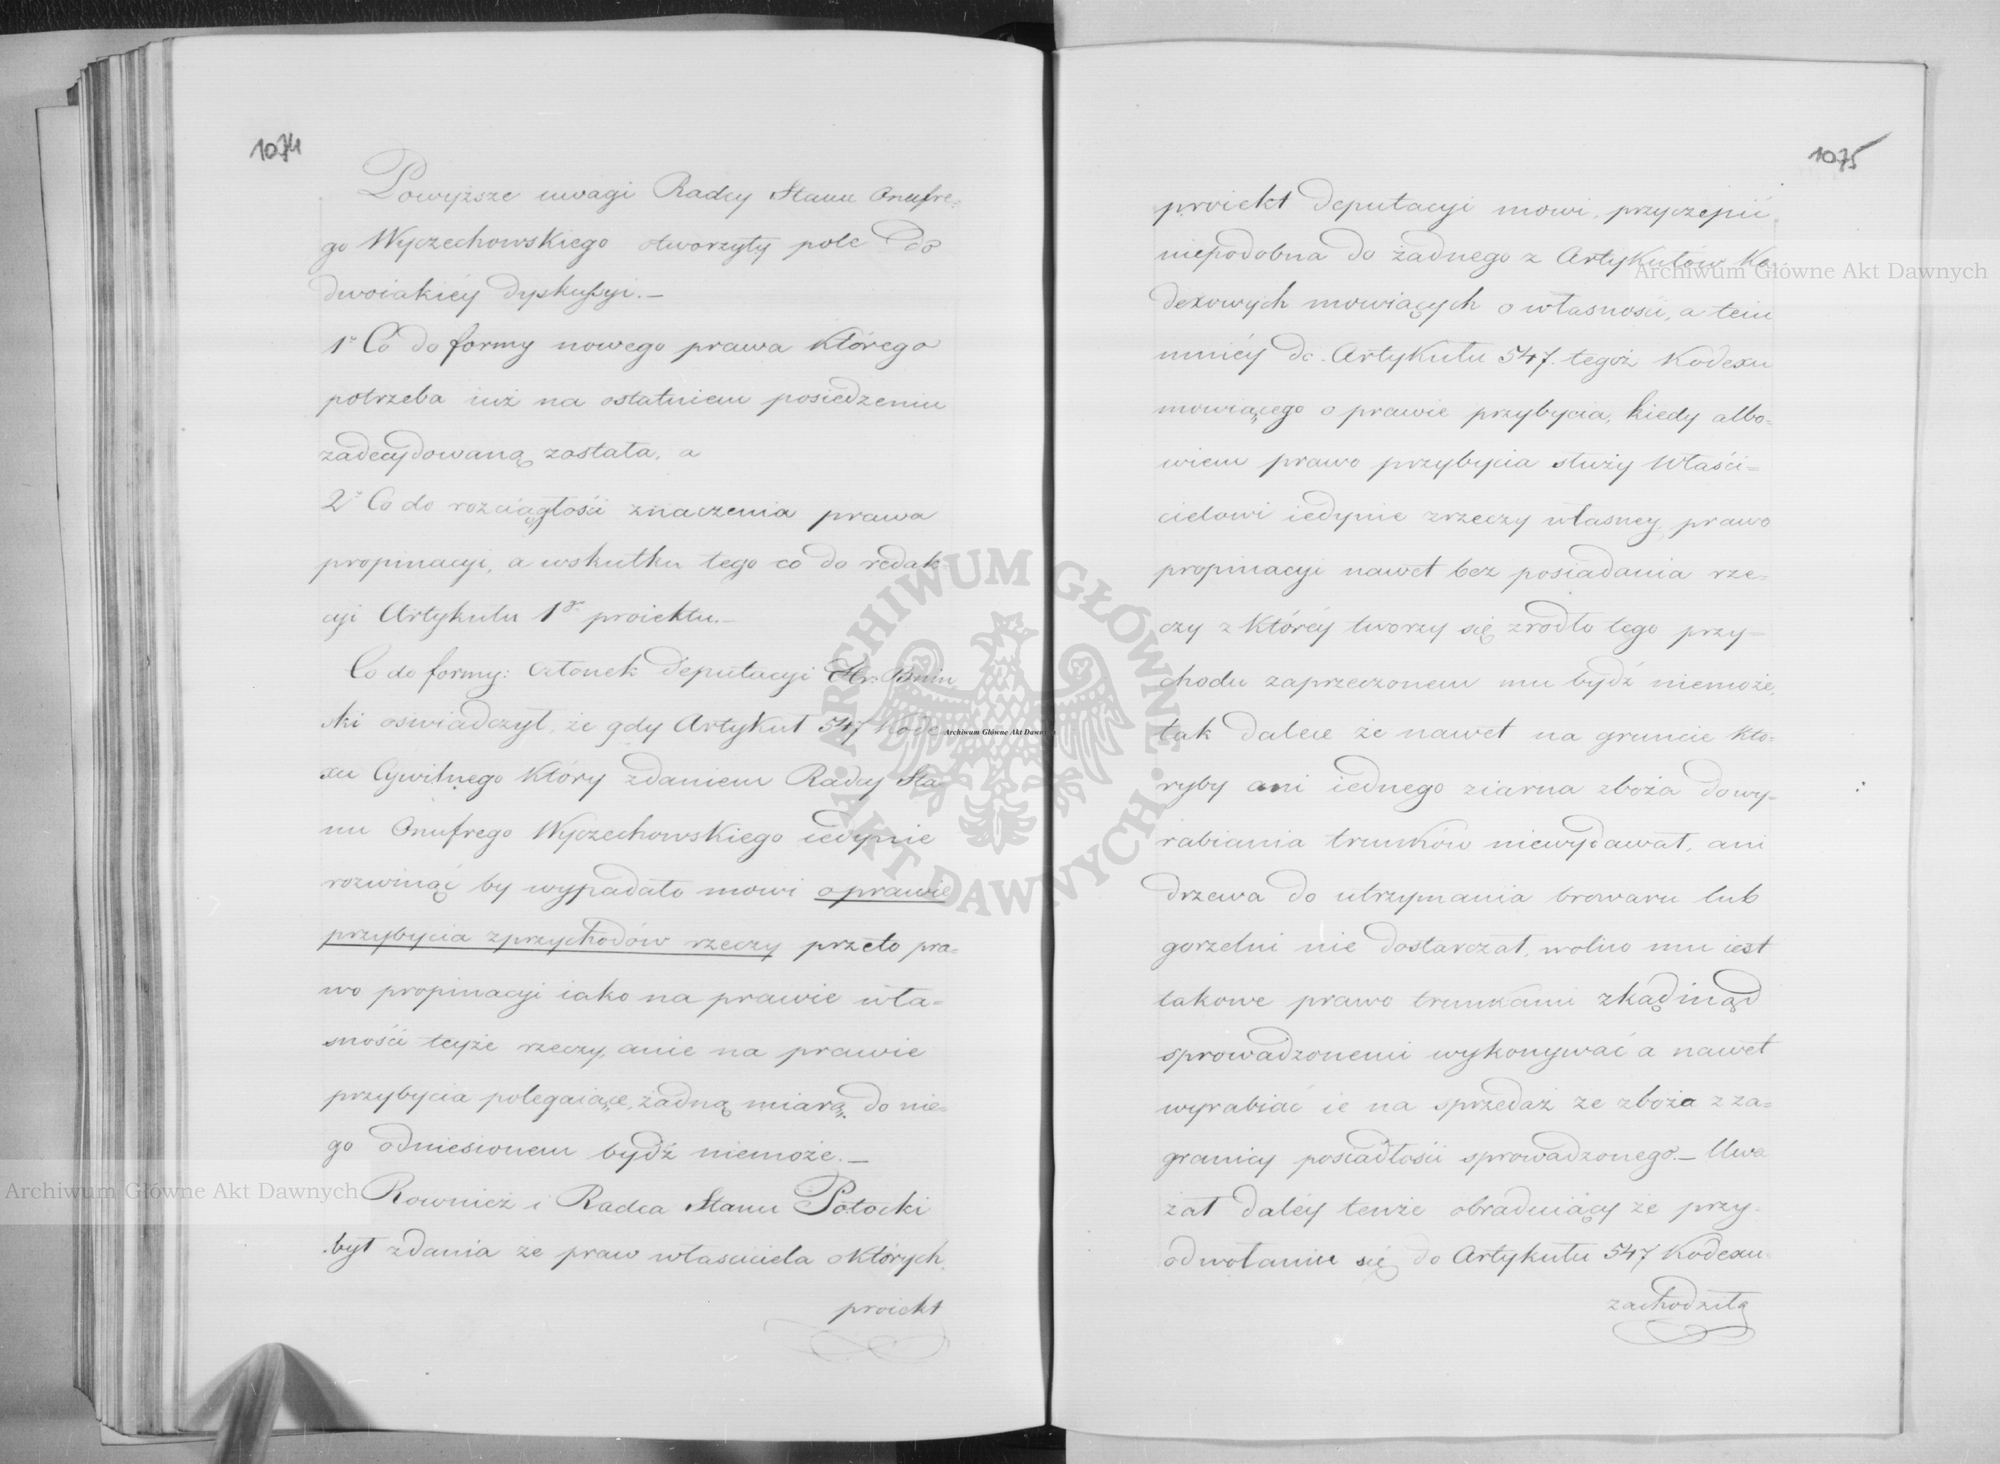 1074
Powyższe uwagi Radcy Stanu Onufre=
go Wyczechowskiego otworzyły pole do
dwoiakiéy dyskußyi.—
1° Co do formy nowego prawa którego
potrzeba iuż na ostatniem posiedzeniu
zadecydowaną została, a
2° Co do rozciągłości znaczenia prawa
propinacyi, a wskutku tego co do redak=
cyi Artykułu 1° proiektu.—
Co do formy: Członek deputacyi Hr. Bnin
ski oświadczył, że gdy Artykuł 547 Kode
xu Cywilnego który zdaniem Radcy Sta
nu Onufrego Wyczechowskiego iedynie
rozwinąć by wypadało mowi o prawie
przybycia z przychodów rzeczy przeto pra=
wo propinacyi iako na prawie wła=
sności teyże rzeczy, anie na prawie
przybycia polegaiące, żadną miarą do nie=
go odniesionem bydź niemoże.—
Rownież i Radca Stanu Potocki
był zdania że praw właściciela o których
proiekt
1075
proiekt deputacyi mowi, przyczepić
niepodobna do żadnego z Artykułów Ko
dexowych mowiących o własności, a tem
mniéy do Artykułu 547. tegoż Kodexu
mowiącego o prawie przybycia, kiedy albo=
wiem prawo przybycia służy Właści=
cielowi iedynie zrzeczy własney, prawo
propinacyi nawet bez posiadania rze=
czy z któréy tworzy się zrodło tego przy=
chodu zaprzeczonem mu bydź niemoże,
tak dalece że nawet na gruncie któ=
ryby ani iednego ziarna zboża do wy=
rabiania trunków niewydawał, ani
drzewa do utrzymania browaru lub
gorzelni nie dostarczał, wolno mu iest
takowe prawo trunkami zkądinąd
sprowadzonemi wykonywać a nawet
wyrabiać ie na sprzedaż ze zboża z za=
granicy posiadłości sprowadzonego.— Uwa
żał daléy tenże obraduiący że przy
odwołaniu się do Artykułu 547 Kodexu
zachodziłą
Archiwum Główne Akt Dawnych
Archiwum Główne Akt Dawnych
Archiwum Główne Akt Dawnych
ARCHIWUM GŁÓWNE AKT DAWNYCH